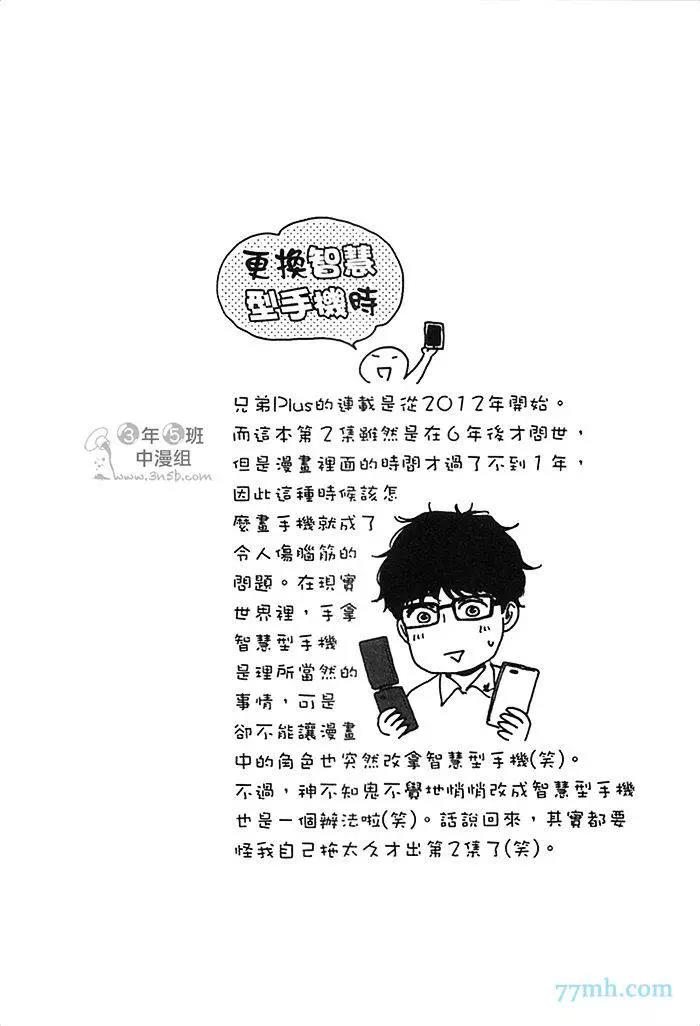 更換智慧
型手機時
兄弟Plus的連載是從2012年開始。
而這本第2集雖然是在6年後才問世，
但是漫畫裡面的時間才過了不到1年，
因此這種時候該怎
麼畫手機就成了
令人傷腦筋的
問題。在現實
世界裡，手拿
智慧型手機
是理所當然的
事情，可是
卻不能讓漫畫
中的角色也突然改拿智慧型手機(笑)。
不過，神不知鬼不覺地悄悄改成智慧型手機
也是一個辦法啦(笑)。話說回來，其實都要
怪我自己拖太久才出第2集了(笑)。
3年5班
中漫組
www.3n5b.com
77mh.com